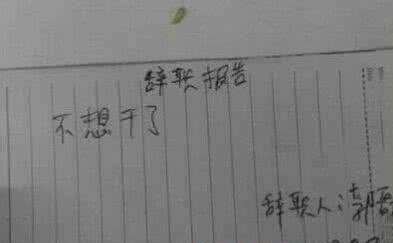 辞职报告
不想干了
辞职人:郭